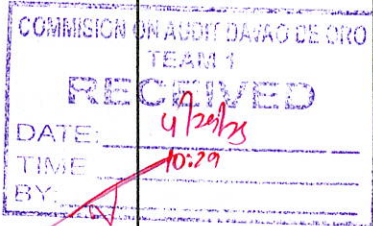 COMMISION ON AUDIT DAVAO DE ORO
TEAM 1
RECEIVED
DATE: 4/29/25
TIME 10:29
BY: